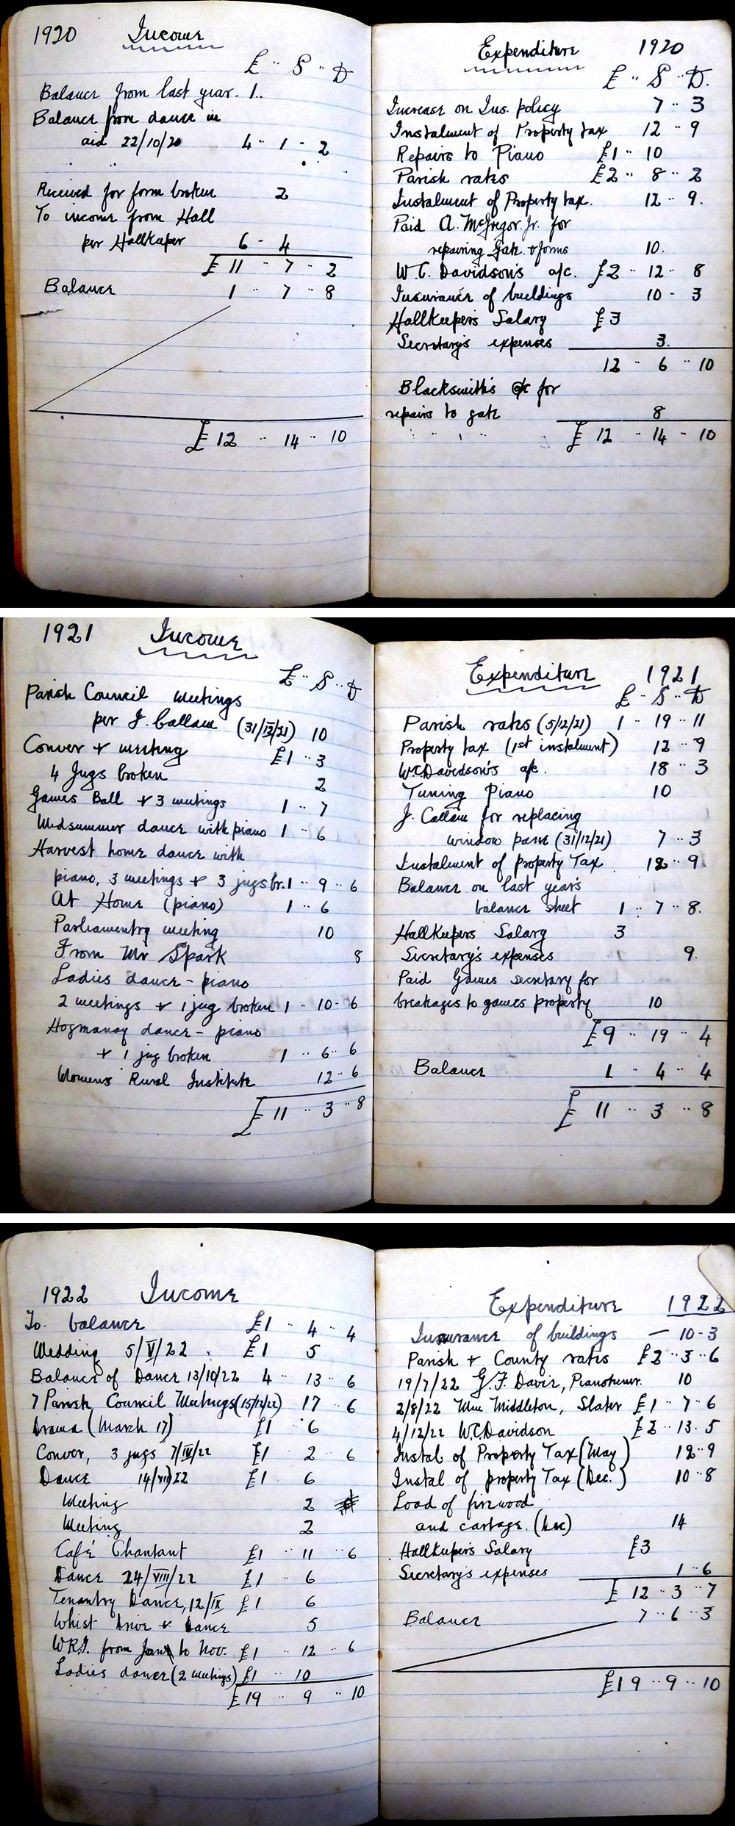 1920 Income
£ ·· S ·· D
Balance from last year. 1..
Balance from dance in
aid 22/10/20 4 - 1 - 2
Received for form broken 2
To income from Hall
per Hallkeeper 6 - 4
£ 11 - 7 - 2
Balance 1 ·· 7 ·· 8
£ 12 ·· 14 ·· 10
Expenditure 1920
£ ·· S ·· D.
Increase on Ins. policy 7 ·· 3
Instalment of Property tax 12 ·· 9
Repairs to Piano £1 ·· 10
Parish rates £2 ·· 8 ·· 2
Instalment of Property tax. 12 ·· 9.
Paid A. McGregor Jr. for
repairing Gate & forms 10.
W.C. Davidson's a/c. £2 ·· 12 ·· 8
Insurance of buildings 10 - 3
Hallkeepers Salary £3
Secretary's expenses 3.
12 - 6 - 10
Blacksmith's a/c for
repairs to gate 8
£ 12 - 14 - 10
1921 Income
£ ·· S ·· D
Parish Council meetings
per J. Callam (31/12/21) 10
Conver + meeting £1 ·· 3
4 Jugs broken 2
Games Ball + 3 meetings 1 ·· 7
Midsummer dance with piano 1 ·· 6
Harvest home dance with
piano, 3 meetings + 3 jugs br. 1 ·· 9 ·· 6
At Home (piano) 1 ·· 6
Parliamentry meeting 10
From Mr Spark 8
Ladies dance - piano
2 meetings + 1 jug broken 1 - 10 - 6
Hogmanay dance - piano
+ 1 jug broken 1 ·· 6 ·· 6
Womens Rural Institute 12 - 6
£ 11 ·· 3 ·· 8
Expenditure 1921
£ ·· S ·· D
Parish rates (5/12/21) 1 - 19 - 11
Property tax (1st instalment) 12 ·· 9
W.C. Davidson's a/c. 18 ·· 3
Tuning Piano 10
J. Callam for replacing
window pane (31/12/21) 7 ·· 3
Instalment of Property Tax 12 ·· 9
Balance on last year's
balance sheet 1 ·· 7 ·· 8.
Hallkeepers Salary 3
Secretary's expenses 9.
Paid Games Secretary for
breakages to games property 10
£9 ·· 19 ·· 4
Balance 1 ·· 4 ·· 4
£ 11 ·· 3 ·· 8
1922 Income
To balance £1 ·· 4 ·· 4
Wedding 5/V/22 £1 5
Balance of Dance 13/10/22 4 ·· 13 ·· 6
7 Parish Council Meetings (15/12/22) 17 ·· 6
Drama (March 17) £1 ·· 6
Conver, 3 jugs £1 ·· 2 ·· 6
Dance £1 ·· 6
Meeting 2
Meeting 2
Café Chantant £1 ·· 11 ·· 6
Dance 24/VIII/22 £1 ·· 6
Tenantry Dance, 12/IX £1 ·· 6
Whist Drive + Dance 5
W.R.I. from Jan to Nov. £1 ·· 12 ·· 6
Ladies dance (2 meetings) £1 ·· 10
£19 ·· 9 ·· 10
Expenditure 1922
Insurance of buildings — 10 - 3
Parish + County rates £2 ·· 3 ·· 6
19/7/22 G.F. Davie, Pianotuner. 10
2/8/22 Wm Middleton, Slater £1 ·· 7 ·· 6
4/12/22 W.C. Davidson £2 ·· 13 ·· 5
Instal of Property Tax (May) 12 ·· 9
Instal of property Tax (Dec.) 10 ·· 8
Load of firewood
and cartage. (Dec) 14
Hallkeepers Salary £3
Secretary's expenses 1 - 6
£ 12 - 3 ·· 7
Balance 7 ·· 6 ·· 3
£19 ·· 9 ·· 10